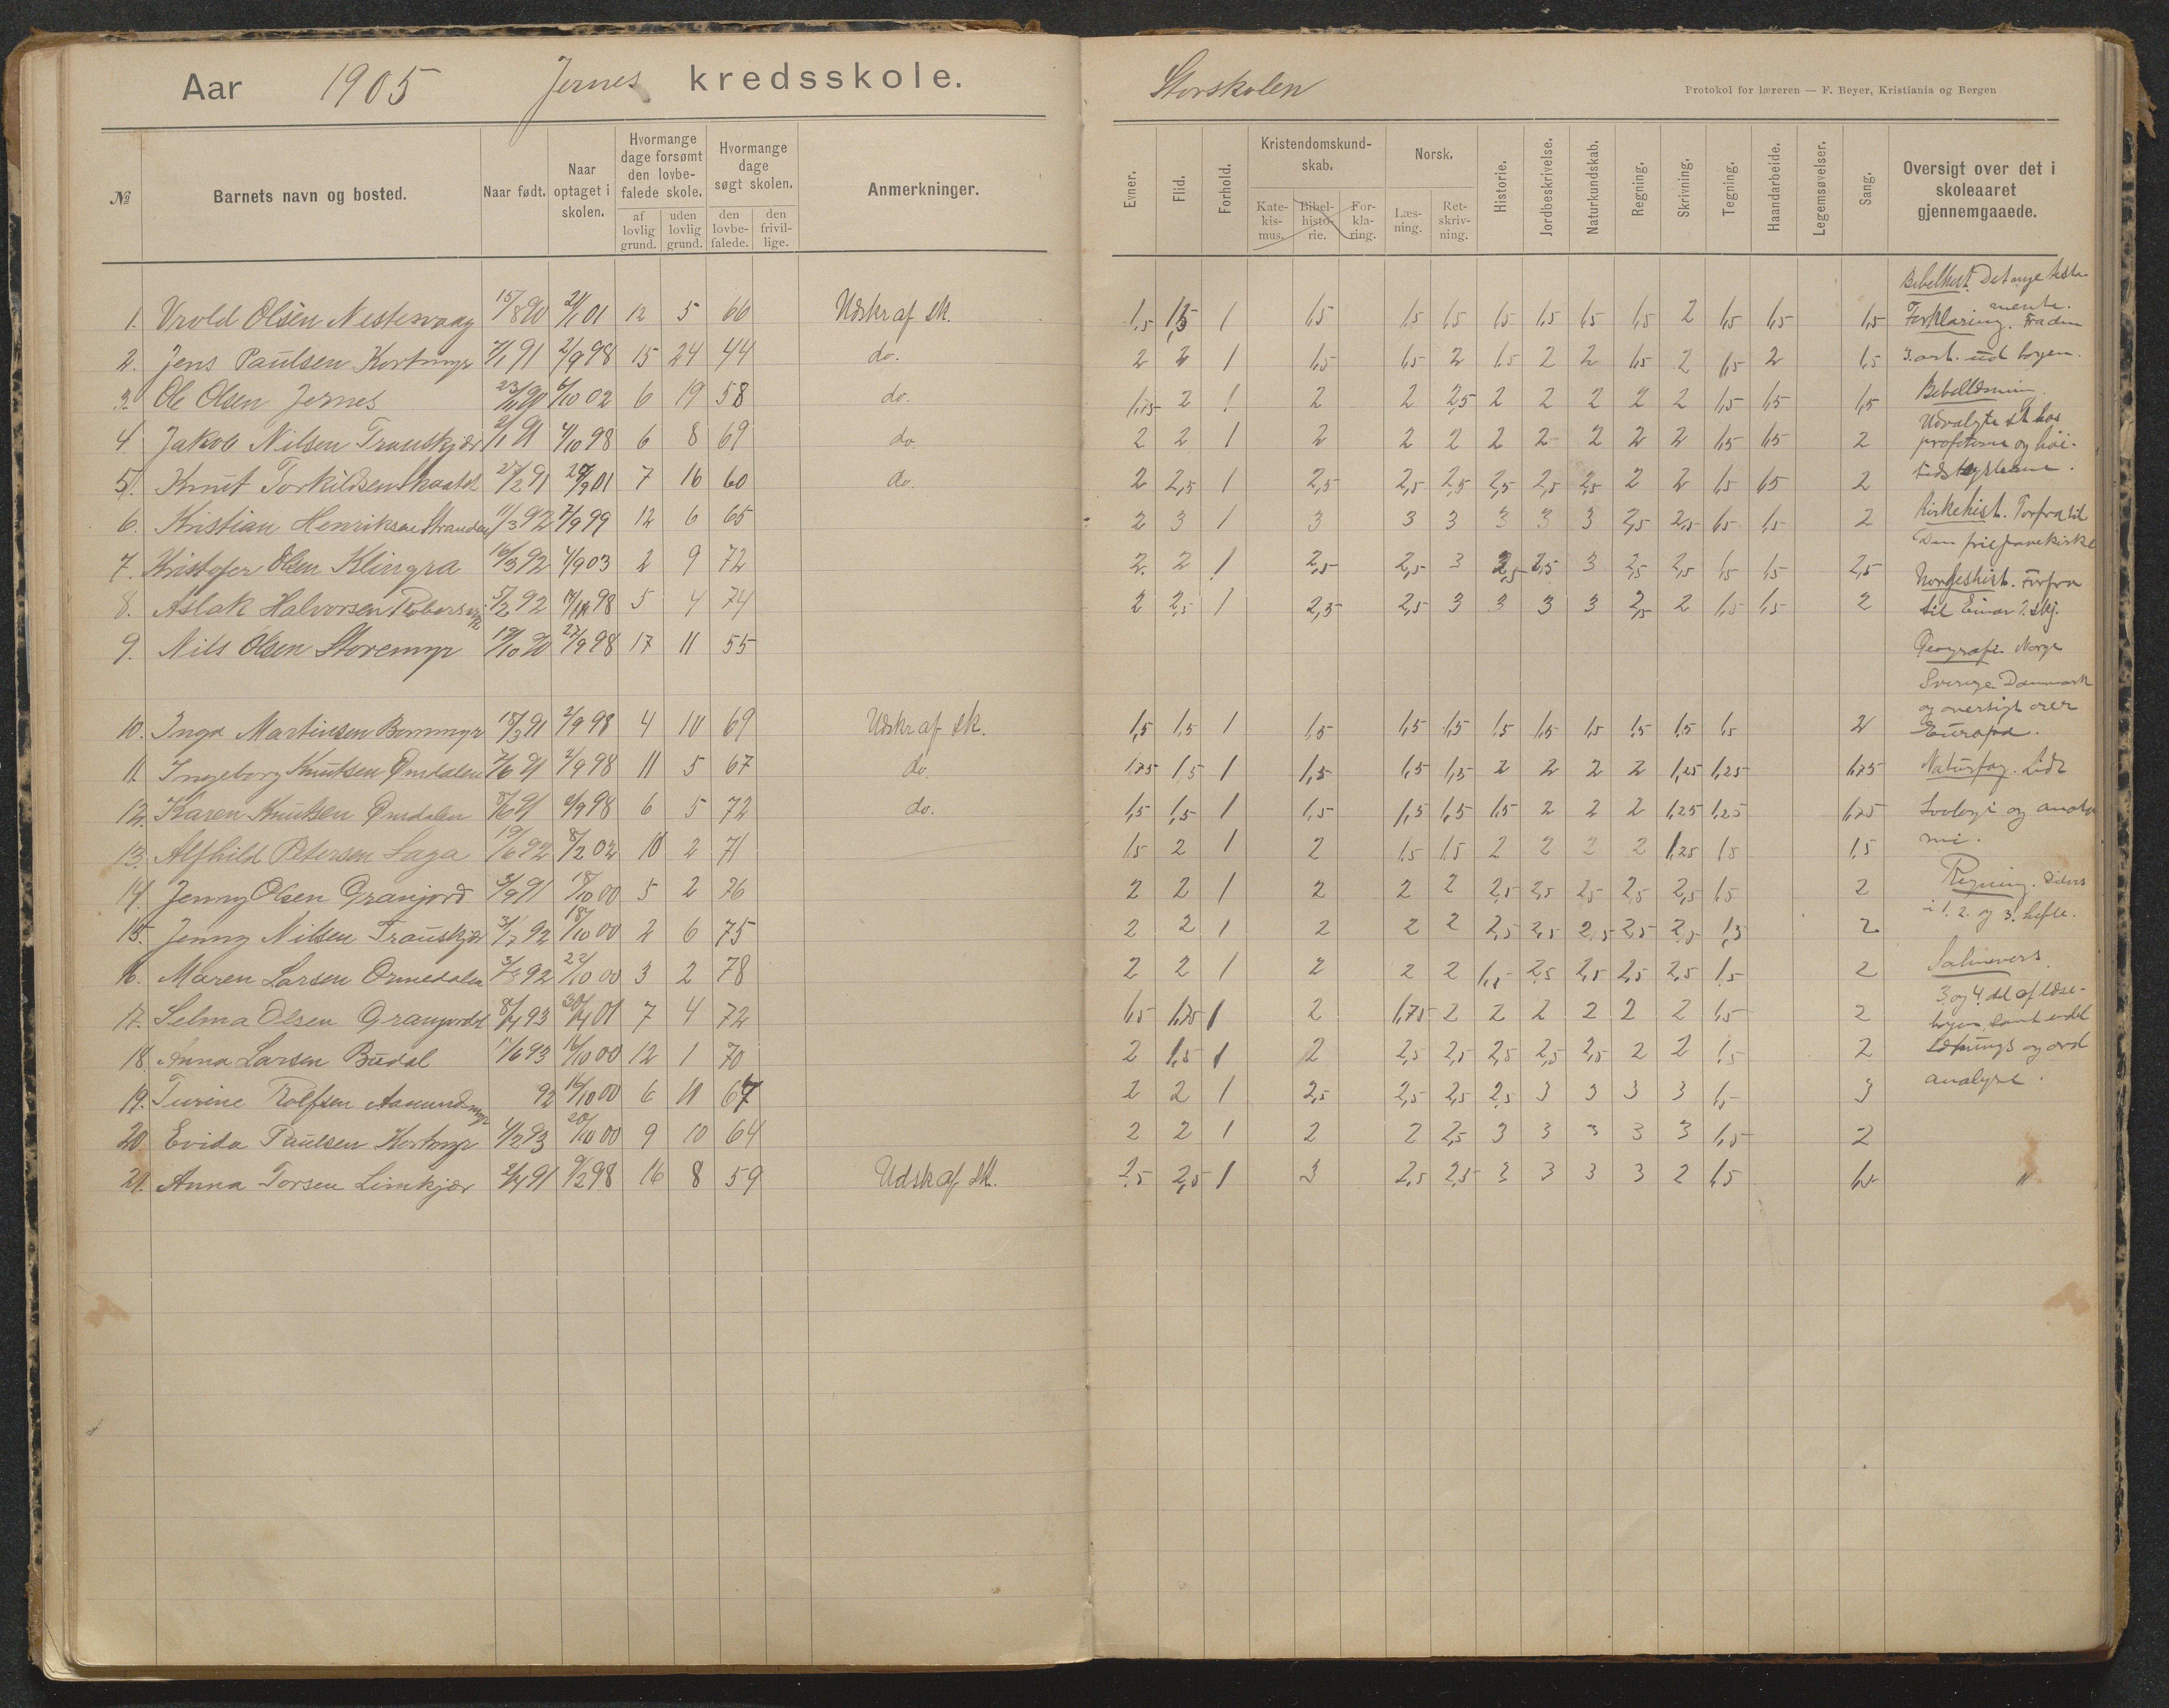 Aar 1905 Jernes kredsskole.
№
Barnets navn og bosted.
Naar født.
Naar optaget i skolen.
Hvormange dage forsømt den lovbefalede skole.
af lovlig grund.
uden lovlig grund.
Hvormange dage søgt skolen.
den lovbefalede.
den frivillige.
Anmerkninger.
1. Vrold Olsen Nestesvaag 15/8 90 2/1 01 12 5 66 Udskr af sk.
2. Jens Paulsen Kortmyr 7/1 91 2/9 98 15 24 44 do.
3. Ole Olsen Jernes 23/11 90 6/10 02 6 19 58 do.
4. Jakob Nilsen Trauskjær 2/1 91 4/10 98 6 8 69 do.
5. Knut Torkildsen 27/2 91 2/9 01 7 16 60 do.
6. Kristian Henriksen Stranden 11/3 92 7/9 99 12 6 65
7. Kristofer Olsen Klingra 16/3 92 4/9 03 2 9 72
8. Aslak Halvorsen 5/2 92 98 5 4 74
9. Nils Olsen Storemyr 19/10 90 27/9 98 17 11 55
10. Inga Martinsen Bommyr 18/3 91 2/9 98 4 10 69 Udskr af sk.
11. Ingeborg Knutsen Omdalen 7/6 91 2/9 98 11 5 67 do.
12. Karen Knutsen Omdalen 8/6 91 2/9 98 6 5 72 do.
13. Alfhild Petersen Laga 19/6 92 8/2 02 10 2 71
14. Jenny Olsen Granjord 3/9 91 18/10 00 5 2 76
15. Jenny Nilsen Trauskjær 31/7 92 18/10 00 2 6 75
16. Maren Larsen Ormedalen 3/8 92 22/10 00 3 2 78
17. Selma Olsen Granjordet 8/4 93 30/4 01 7 4 72
18. Anna Larsen Budal 17/6 93 16/10 00 12 1 70
19. Turine Rolfsen Aamundsmyr 92 16/10 00 6 11 64
20. Evida Paulsen Kortmyr 4/2 93 20/10 00 9 10 64
21. Anna Torsen Limkjær 2/4 91 9/2 98 16 8 59 Udsk af sk.
Storskolen
Protokol for læreren — F. Beyer, Kristiania og Bergen
Evner.
Flid.
Forhold.
Kristendomskundskab.
Katekismus.
Bibelhistorie.
Forklaring.
Norsk.
Læsning.
Retskrivning.
Historie.
Jordbeskrivelse.
Naturkundskab.
Regning.
Skrivning.
Tegning.
Haandarbeide.
Legemsøvelser.
Sang.
Oversigt over det i skoleaaret gjennemgaaede.
1,5 1,5 1 1,5 1,5 1,5 1,5 1,5 1,5 1,5 2 1,5 1,5 1,5
2 2 1 1,5 1,5 2 1,5 2 2 1,5 2 1,5 2 1,5
1,75 2 1 2 2 2,5 2 2 2 2 2 1,5 1,5 1,5
2 2 1 2 2 2 2 2 2 2 2 1,5 1,5 2
2 2,5 1 2,5 2,5 2,5 2,5 2,5 2,5 2 2 1,5 1,5 2
2 3 1 3 3 3 3 3 3 2,5 2,5 1,5 1,5 2
2. 2 1 2,5 2,5 3 2,5 2,5 3 2,5 2,5 1,5 1,5 2,5
2 2,5 1 2,5 2,5 3 3 3 3 2,5 2 1,5 1,5 2
1,5 1,5 1 1,5 1,5 1,5 1,5 1,5 1,5 1,5 1,5 1,5 2
1,75 1,5 1 1,5 1,5 1,5 2 2 2 2 1,25 1,25 1,75
1,5 1,5 1 1,5 1,5 1,5 1,5 2 2 2 1,25 1,25 1,75
1,5 2 1 2 1,5 1,5 2 2 2 2 1,25 1,5 1,5
2 2 1 2 2 2 2,5 2,5 2,5 2,5 2,5 1,5 2
2 2 1 2 2 2 2,5 2,5 2,5 2,5 2,5 1,5 2
2 2 1 2 2 2 1,5 2,5 2,5 2,5 2,5 1,5 2
1,5 1,75 1 2 1,75 2 2 2 2 2 2 1,5 2
2 1,5 1 2 2,5 2,5 2,5 2,5 2,5 2 2 1,5 2
2 2 1 2,5 2,5 2,5 2,5 3 3 3 3 1,5 3
2 2 1 2 2 2,5 3 3 3 3 3 1,5 2
2,5 2,5 1 3 2,5 2,5 3 3 3 3 2 1,5 1,5 "
Bibelhist. Det nye testa-
mente.
Forklaring. Fra den
3. art. ud bogen.
Bibellæsning
Udvalgte sk hos
profeterne og høi-
tidstexterne.
Kirkehist. Forfra til
Den frie
Norgeshist. Forfra
til Einar
Geografi. Norge
Sverige Danmark
og oversigt over
Europa.
Naturfag. Lidt
zoologi og anato
mi.
Regning.
i 1. 2. og 3. hefte.
Salmevers.
3 og 4 del af læse-
bogen samt endel
sætnings og ord
analyse.